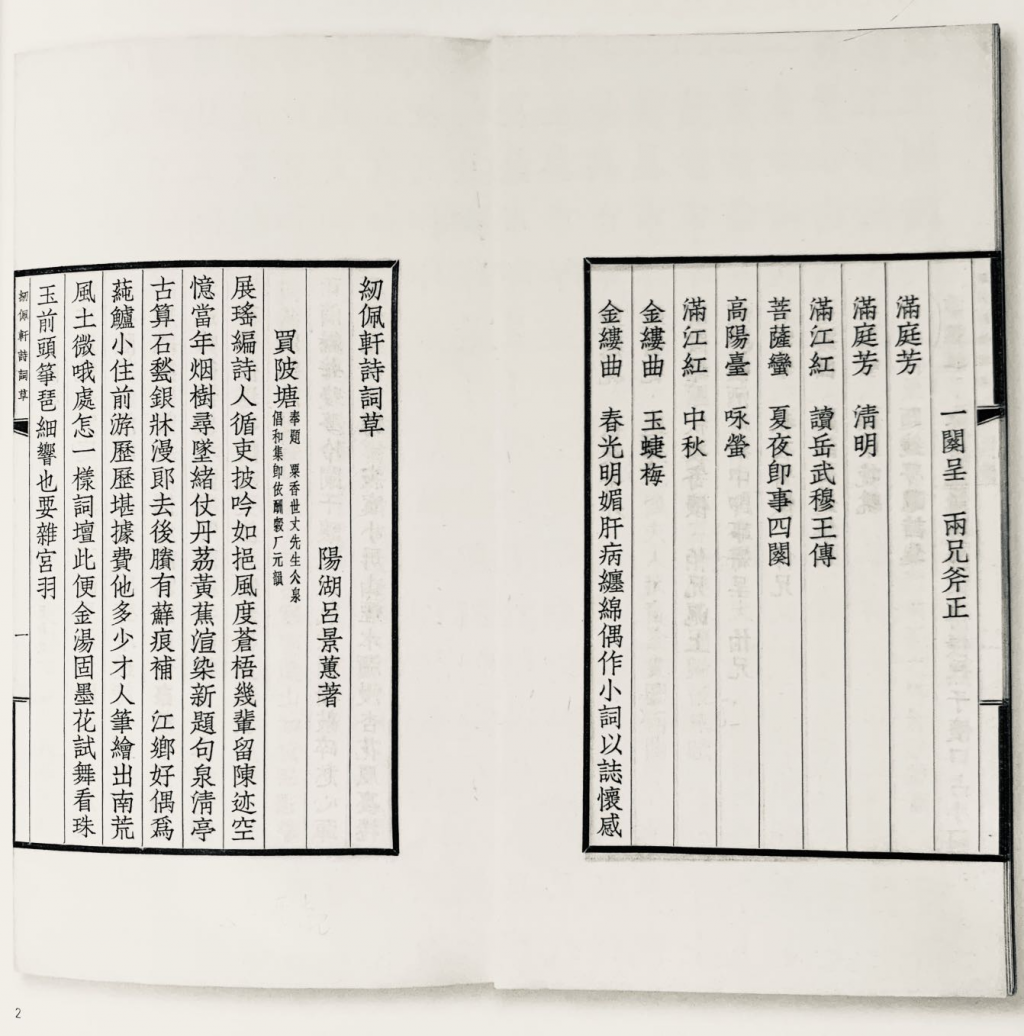 一闋呈　兩兄斧正
滿庭芳
滿庭芳　淸明
滿江紅　讀岳武穆王傳
菩薩蠻　夏夜卽事四闋
高陽臺　咏螢
滿江紅　中秋
金縷曲　玉蜨梅
金縷曲　春光明媚肝病纏綿偶作小詞以誌懷感
紉佩軒詩詞草
陽湖呂景蕙著
買陂塘
奉題　粟香世丈先生仌泉
倡和集卽依酬穀厂元韻
展瑤編詩人循吏披吟如挹風度蒼梧幾輩留陳迹空
憶當年烟樹尋墜緒仗丹荔黃蕉渲染新題句泉淸亭
古算石甃銀牀漫郞去後賸有蘚痕補　江鄉好偶爲
蒓鱸小住前游歷歷堪據費他多少才人筆繪出南荒
風土微哦處怎一樣詞壇此便金湯固墨花試舞看珠
玉前頭箏琶細響也要雜宮羽
紉佩軒詩詞草
一
2